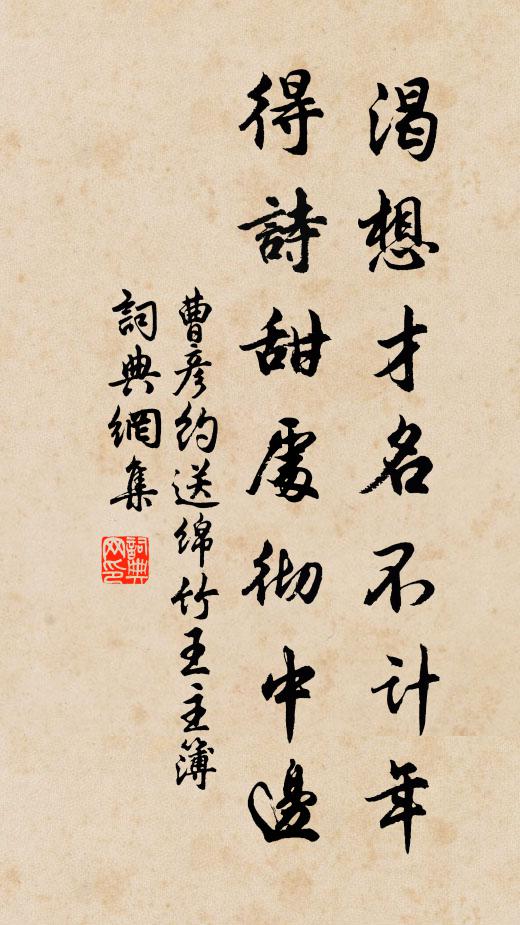 渴想才名不計年
得詩甜處彻中邊
曹彦約送綿竹王主簿
詞典網集
詞典網印